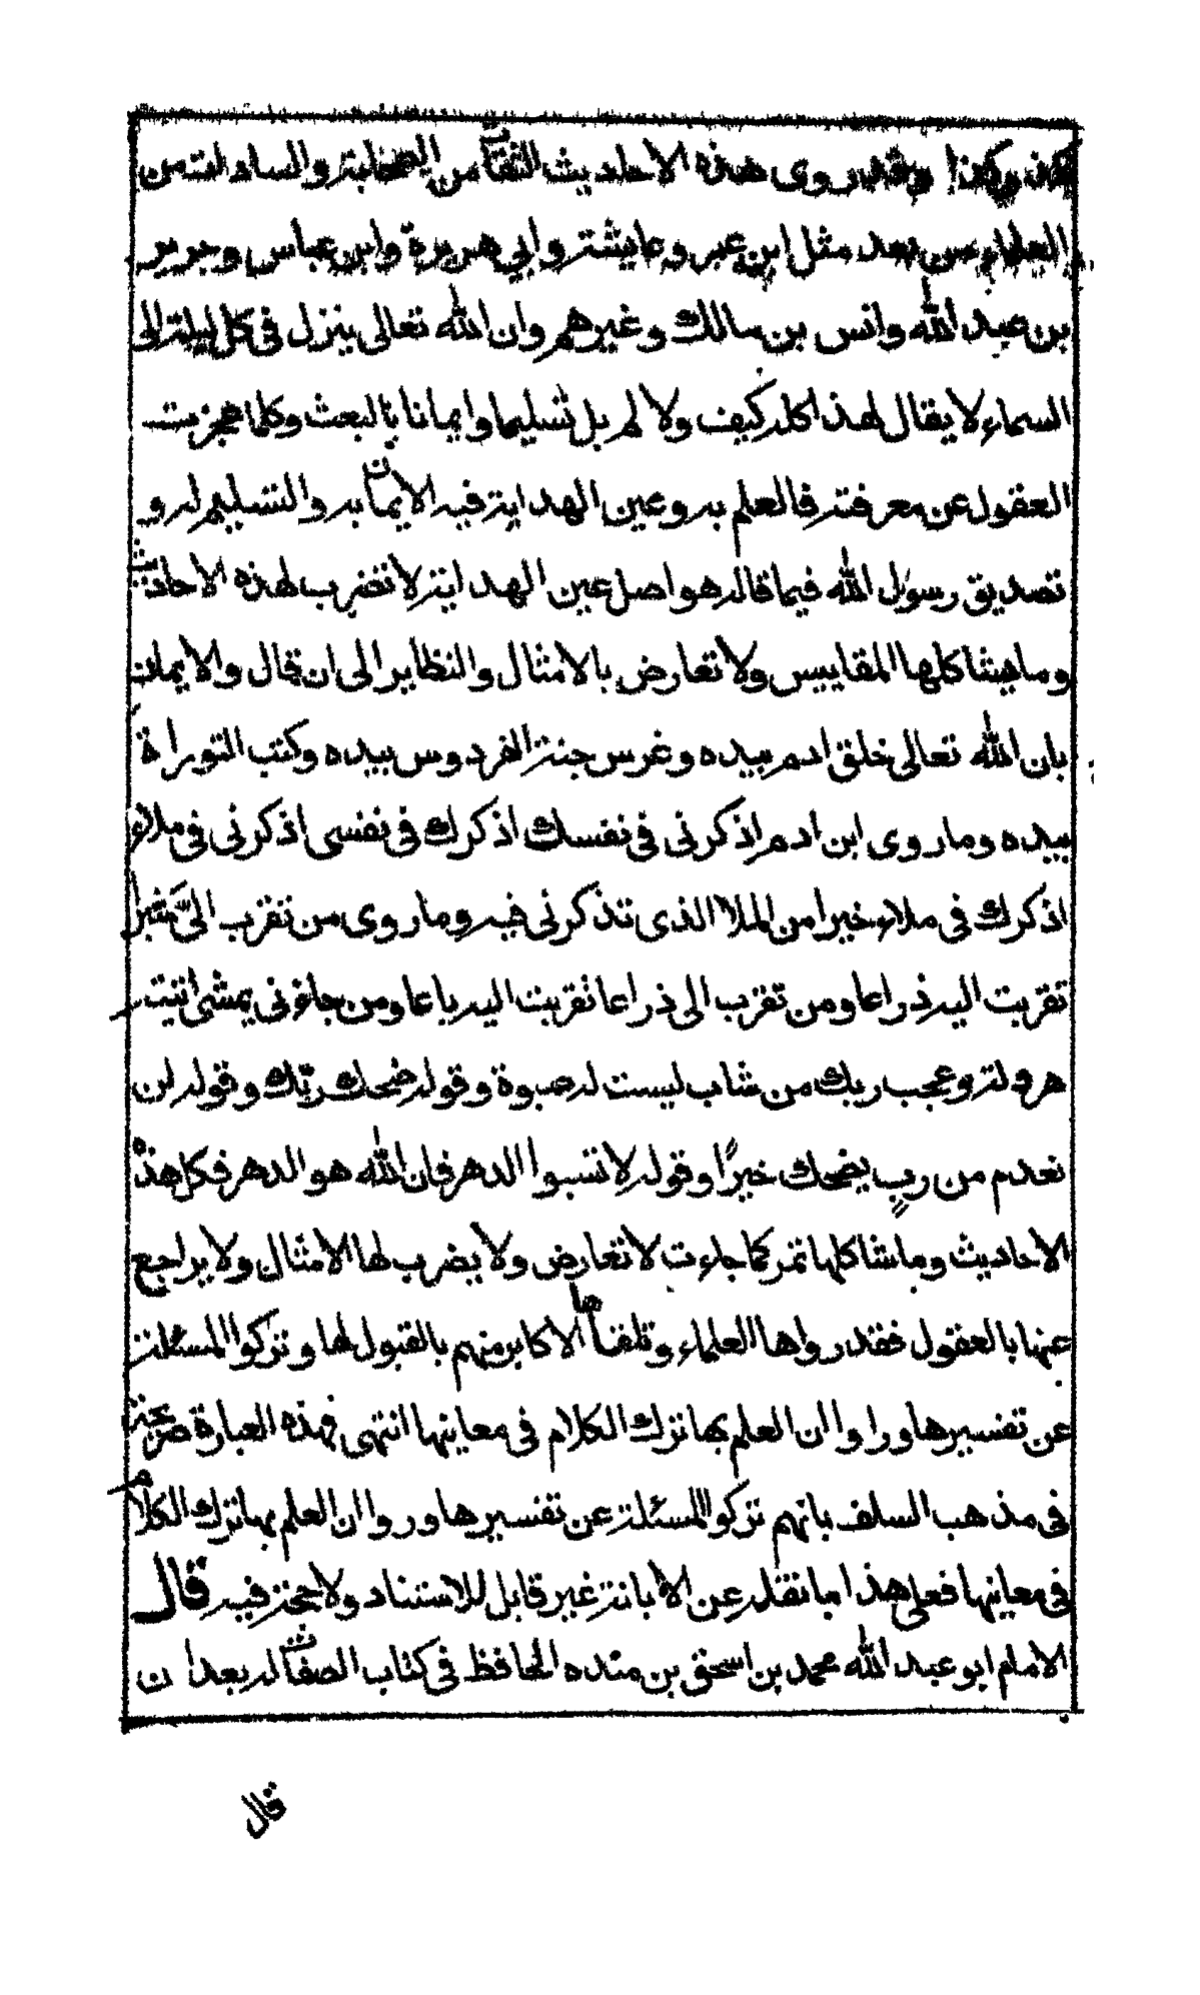 كذا وكذا وقد روى هذه الاحاديث الثقات من الصحابة والسادات من
العلماء من بعد مثل ابن عمر وعايشة وابي هريرة وابن عباس وجرير
بن عبد الله وانس بن مالك وغيرهم وان الله تعالى ينزل في كل ليلة الى
السماء لا يقال لهذا كله كيف ولا لم بل تسليما وايمانا بالبعث وكلما عجزت
العقول عن معرفته فالعلم به وعين الهداية فيه الايمان به والتسليم له و
تصديق رسول الله فيما قاله هو اصل عين الهداية لا تضرب لهذه الاحاديث
وما شاكلها المقاييس ولا تعارض بالامثال والنظاير الى ان قال والايمان
بان الله تعالى خلق ادم بيده وغرس جنة الفردوس بيده وكتب التوراة
بيده وما روى ابن ادم اذكرني في نفسك اذكرك في نفسي اذكرني في ملاء
اذكرك في ملاء خيرا من الملا الذي تذكرني فيه وما روى من تقرب الىّ شبرا
تقربت اليه ذراعا ومن تقرب الى ذراعا تقربت اليه باعا ومن جاءني يمشى اتيت
هرولة وعجب ربك من شاب ليست له صبوة وقوله ضحك ربّك وقوله لن
نعدم من رب يضحك خيرًا وقوله لا تسبوا الدهر فان الله هو الدهر فكل هذه
الاحاديث وما شاكلها تمر كما جاءت لا تعارض ولا يضرب لها الامثال ولا يراجع
عنها بالعقول فقد رواها العلماء وتلقاها الاكابر منهم بالقبول لها وتركوا المسئلة
عن تفسيرها وراوا ان العلم بها ترك الكلام في معاينها انتهى فهذه العبارة صريحة
في مذهب السلف بانهم تركوا المسئلة عن تفسيرها وروا ان العلم بها ترك الكلام
في معاينها فعلى هذا ما نقله عن الابانة غير قابل للاستناد ولا حجة فيه قال
الامام ابو عبد الله محمد بن اسحق بن منده الحافظ في كتاب الصفات له بعد ان
قال